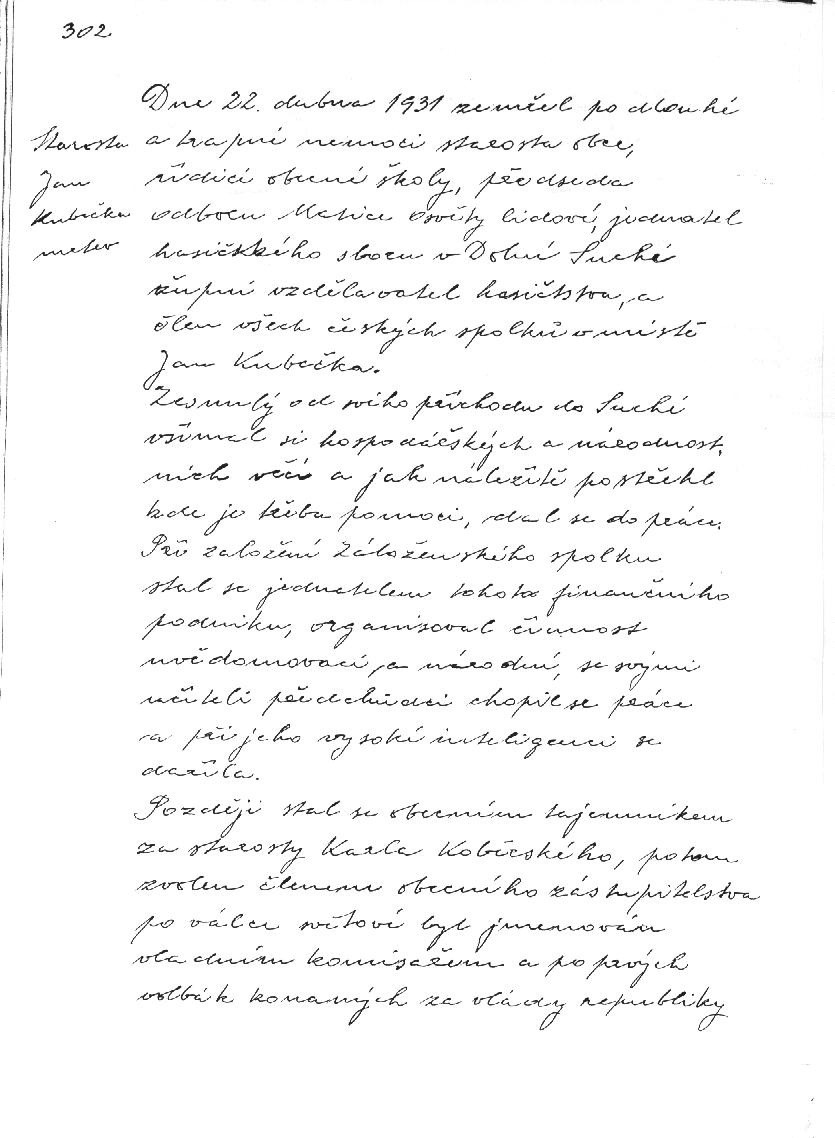 302.
Starosta
Jan
Kubečka
mrtev
Dne 22. dubna 1931 zemřel po dlouhé
a trapné nemoci starosta obce,
řídící obecné školy, předseda
odboru Matice osvěty lidové, jednatel
hasičského sboru v Dolní Suché
župní vzdělavatel hasičstva, a
člen všech českých spolků v místě
Jan Kubečka.
Zesnulý od svého příchodu do Suché
všímal si hospodářských a národnost.
ních věcí a jak náležitě postřehl
kde je třeba pomoci, dal se do práce.
Při založení Záloženského spolku
stal se jednatelem tohoto finančního
podniku, organisoval činnost
uvědomovací, a národní, se svými
učiteli předchůdci chopil se práce
a při jeho vysoké inteligenci se
dařila.
Později stal se obecním tajemníkem
za starosty Karla Kobírského, potom
zvolen členem obecního zástupitelstva
po válce světové byl jmenován
vládním komisařem a po prvých
volbák konaných za vlády republiky